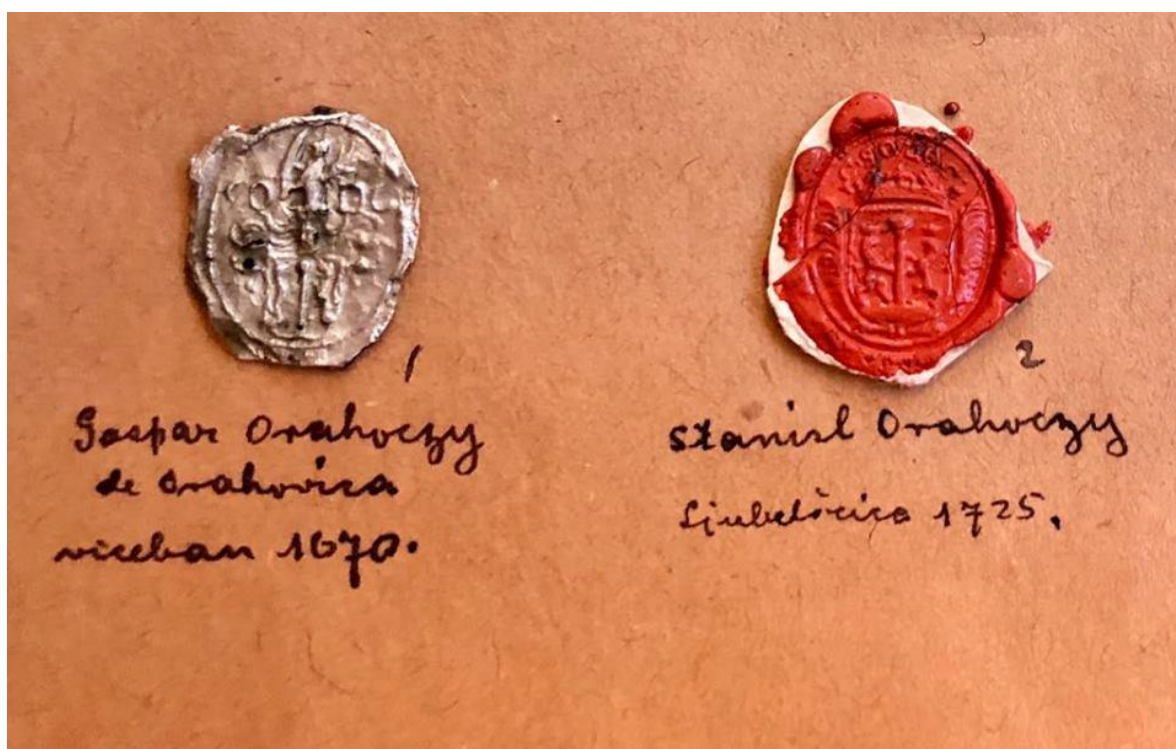 1
Gaspar Orahoczy
de Orahovica
viceban 1670.
2
Stanisl Orahoczy
1725.